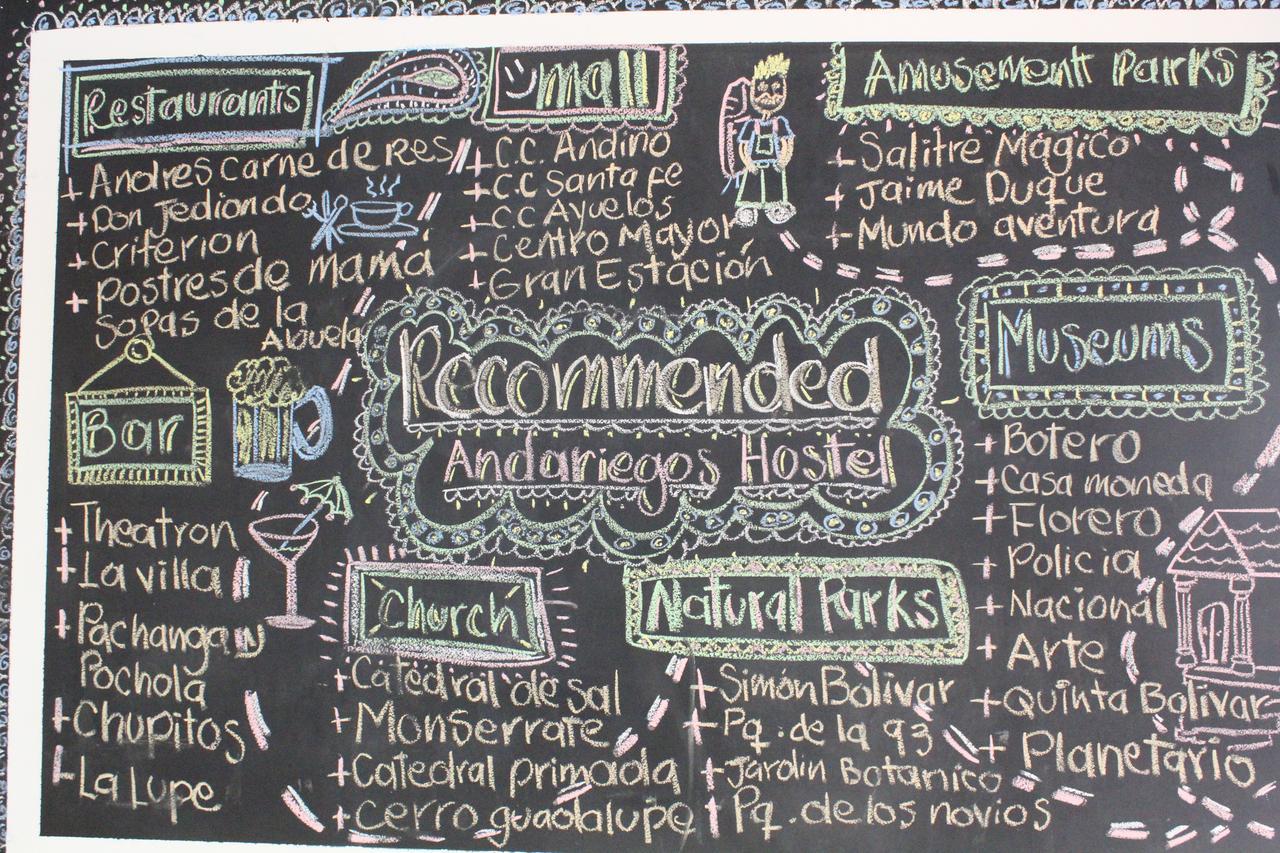 Restaurants
+ Andres carne de Res
+ Don Jediondo
+ Criterion
+ Postres de mamá
Sopas de la
Abuela
mall
+ C.C. Andino
+ C.C Santa fe
C.C Ayuelos
+ Centro Mayor
+ Gran Estación
Amusement Parks
+ Salitre Mágico
+ Jaime Duque
+ Mundo aventura
Recommended
Andariegos Hostel
Museums
+ Botero
+ Casa moneda
+ Florero
+ Policia
+ Nacional
+ Arte
+ Quinta Bolivar
+ Planetario
Bar
+ Theatron
+ La villa
+ Pachanga y
Pochola
+ Chupitos
+ La Lupe
Church
+ Catedral de sal
+ Monserrate
+ Catedral primada
+ cerro guadalupe
Natural Parks
+ Simón Bolivar
+ Pq. de la 93
+ Jardin Botanico
+ Pq. de los novios